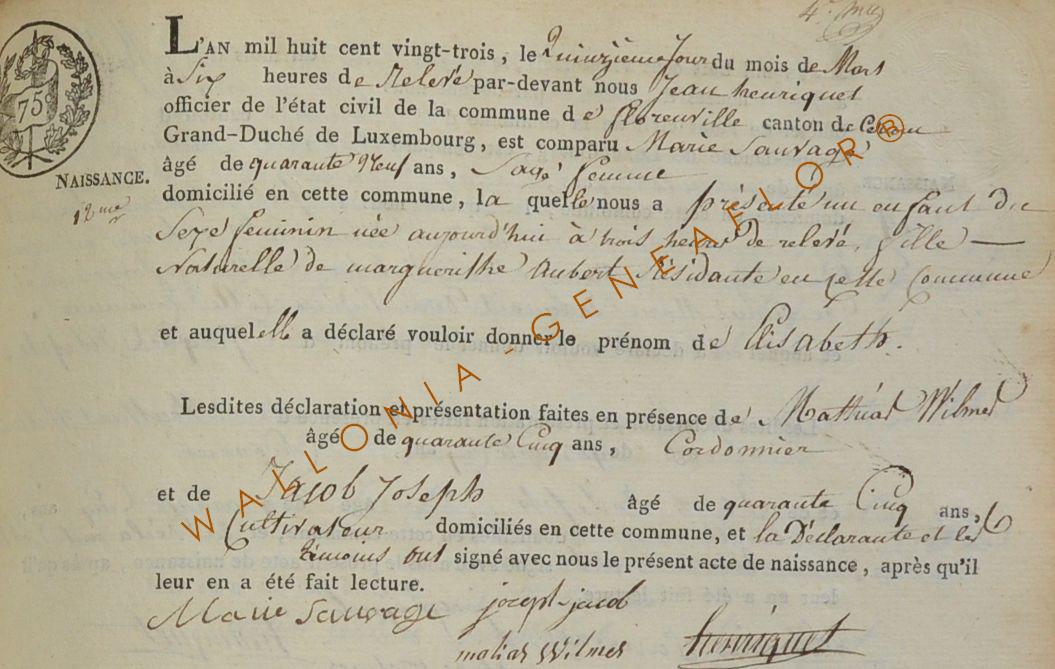 4e
75
L'AN mil huit cent vingt-trois, le Quinzième Jour du mois de Mars
à Six heures de Relevé par-devant nous Jean henriquet
officier de l'état civil de la commune de florenville canton de
Grand-Duché de Luxembourg, est comparu Marie Sauvage
âgé de quarante Neuf ans, Sage femme
NAISSANCE.
12me
domicilié en cette commune, la quelle nous a présenté un enfant du
Sexe féminin née aujourd'hui à trois heures de relevé, fille —
Naturelle de margueritte Aubert Résidante en cette Commune
et auquel elle a déclaré vouloir donner le prénom de Elisabeth.
Lesdites déclaration et présentation faites en présence de Mathias Wilmes
âgé de quarante Cinq ans, Cordonnier
et de Jacob Joseph âgé de quarante Cinq ans,
Cultivateur domiciliés en cette commune, et la Déclarante et les
témoins ont signé avec nous le présent acte de naissance, après qu'il
leur en a été fait lecture.
Marie Sauvage joseph jacob
matias Wilmes henriquet
WALLONIA - GENEAFLOR®